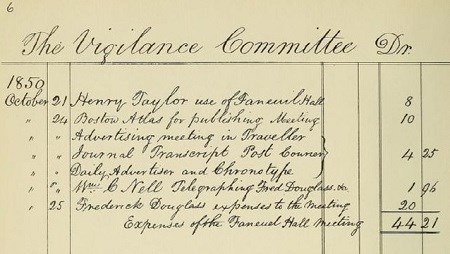 6
The Vigilance Committee Dr.
1850
October 21 Henry Taylor use of Faneuil Hall 8
" 24 Boston Atlas for publishing Meeting 10
" " Advertising meeting in Traveller
" " Journal Transcript Post Courier 4 25
" " Daily Advertiser and Chronotype
" " Wm. C Nell Telegraphing Fred Douglass. &c 1 96
" 25 Frederick Douglass expenses to the Meeting 20
Expenses of the Faneuel Hall Meeting 44 21